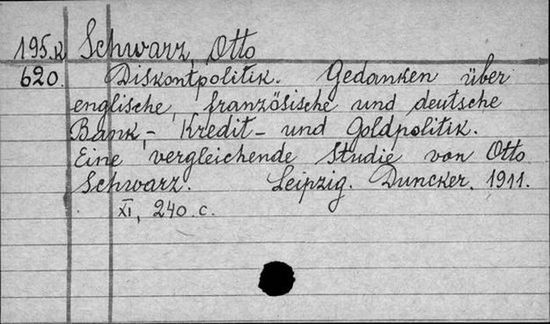 195.K Schwarz, Otto
620. Diskontpolitik. Gedanken über
englische, französische und deutsche
Bank-, Kredit- und Goldpolitik.
Eine vergleichende Studie von Otto
Schwarz. Leipzig. Duncker. 1911.
XI, 240 c.